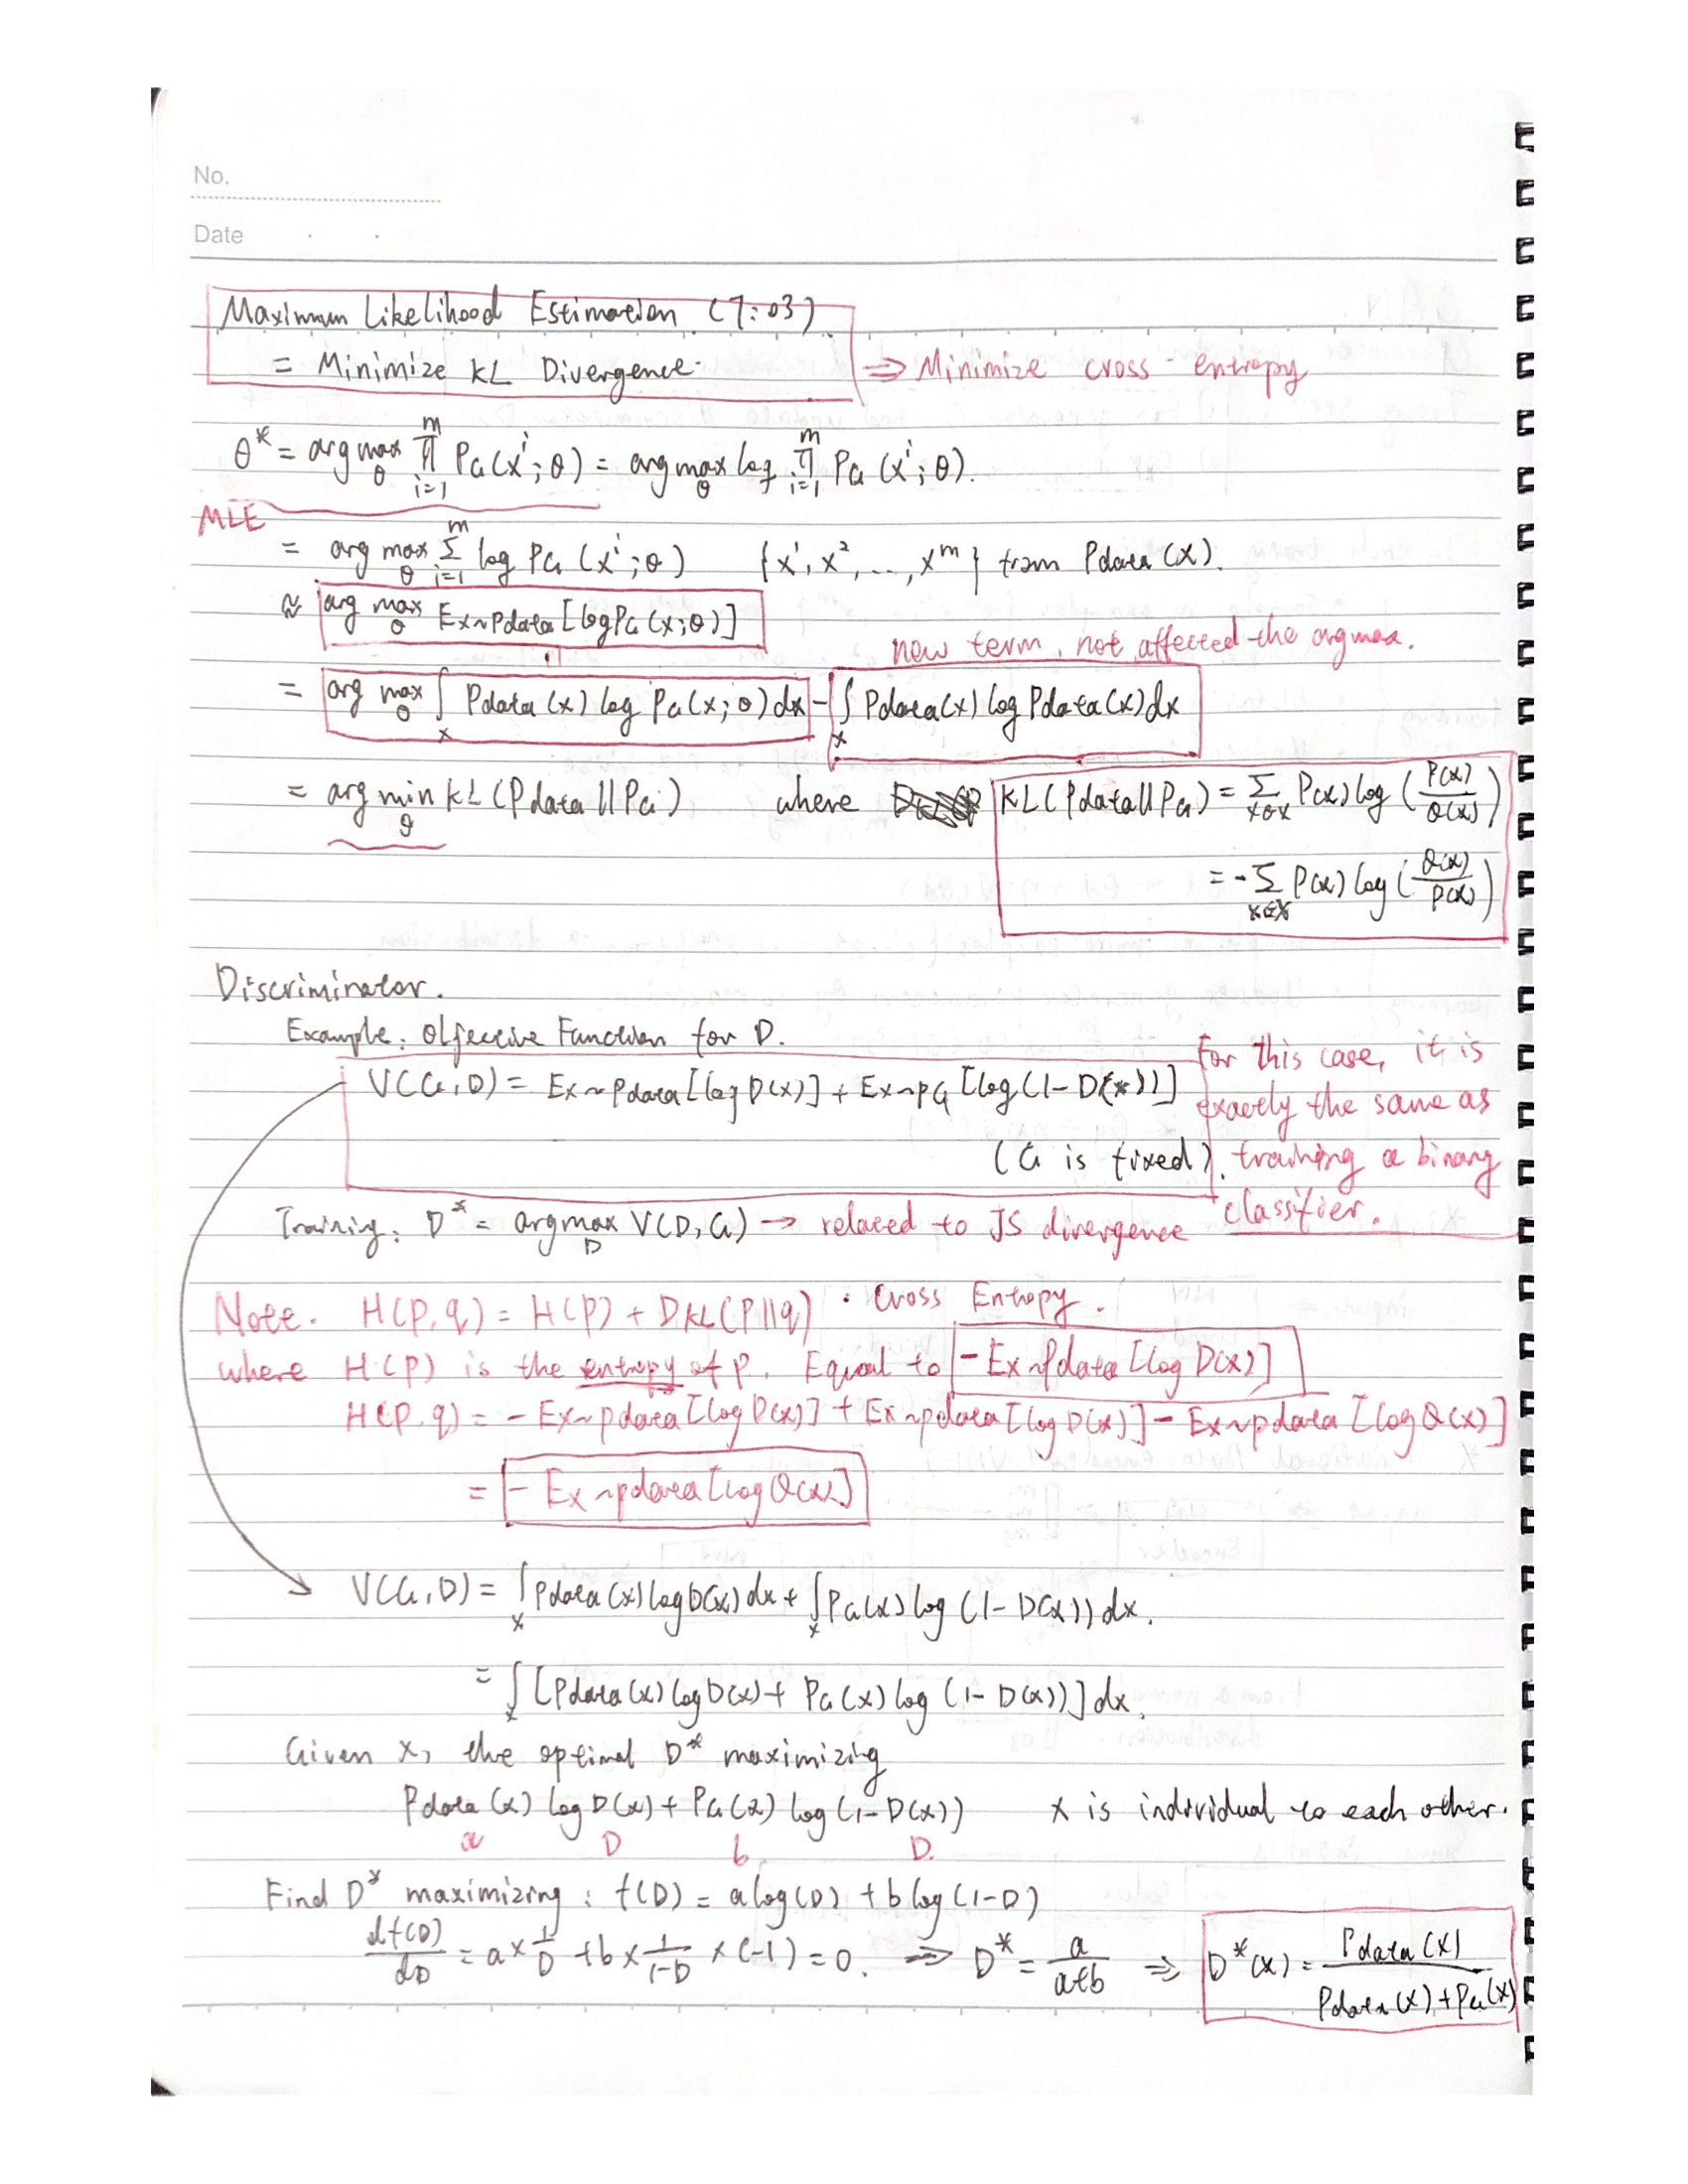 No.
Date
Maximum Likelihood Estimation (7:03)
= Minimize KL Divergence. ⇒ Minimize cross-entropy
θ* = arg max_θ ∏_{i=1}^m P_G(x^i; θ) = arg max_θ log ∏_{i=1}^m P_G(x^i; θ).
MLE
= arg max_θ Σ_{i=1}^m log P_G(x^i; θ) {x^1, x^2, ..., x^m} from Pdata(x).
≈ arg max_θ E_{x~Pdata}[log P_G(x; θ)]
new term, not affected the argmax.
= arg max_θ ∫_x Pdata(x) log P_G(x; θ) dx - ∫_x Pdata(x) log Pdata(x) dx
= arg min_θ KL(Pdata || P_G) where KL(Pdata || P_G) = Σ_{x∈X} P(x) log (P(x)/Q(x))
= - Σ_{x∈X} P(x) log (Q(x)/P(x))
Discriminator.
Example: Objective Function for D.
V(G, D) = E_{x~Pdata}[log D(x)] + E_{x~P_G}[log(1 - D(x))]
(G is fixed).
For this case, it is
exactly the same as
training a binary
classifier.
Training: D* = argmax_D V(D, G) → related to JS divergence
Note. H(p, q) = H(p) + D_KL(p || q) · Cross Entropy.
where H(p) is the entropy of p. Equal to - E_{x~Pdata}[log D(x)]
H(p, q) = - E_{x~pdata}[log D(x)] + E_{x~pdata}[log D(x)] - E_{x~pdata}[log Q(x)]
= - E_{x~pdata}[log Q(x)]
V(G, D) = ∫_x Pdata(x) log D(x) dx + ∫_x P_G(x) log (1 - D(x)) dx.
= ∫_x [Pdata(x) log D(x) + P_G(x) log (1 - D(x))] dx.
Given x, the optimal D* maximizing
Pdata(x) log D(x) + P_G(x) log (1 - D(x)) x is individual to each other.
a D b D.
Find D* maximizing: f(D) = a log(D) + b log(1 - D)
df(D)/dD = a × 1/D + b × 1/(1-D) × (-1) = 0. ⇒ D* = a/(a+b) ⇒ D*(x) = Pdata(x)/(Pdata(x) + P_G(x))